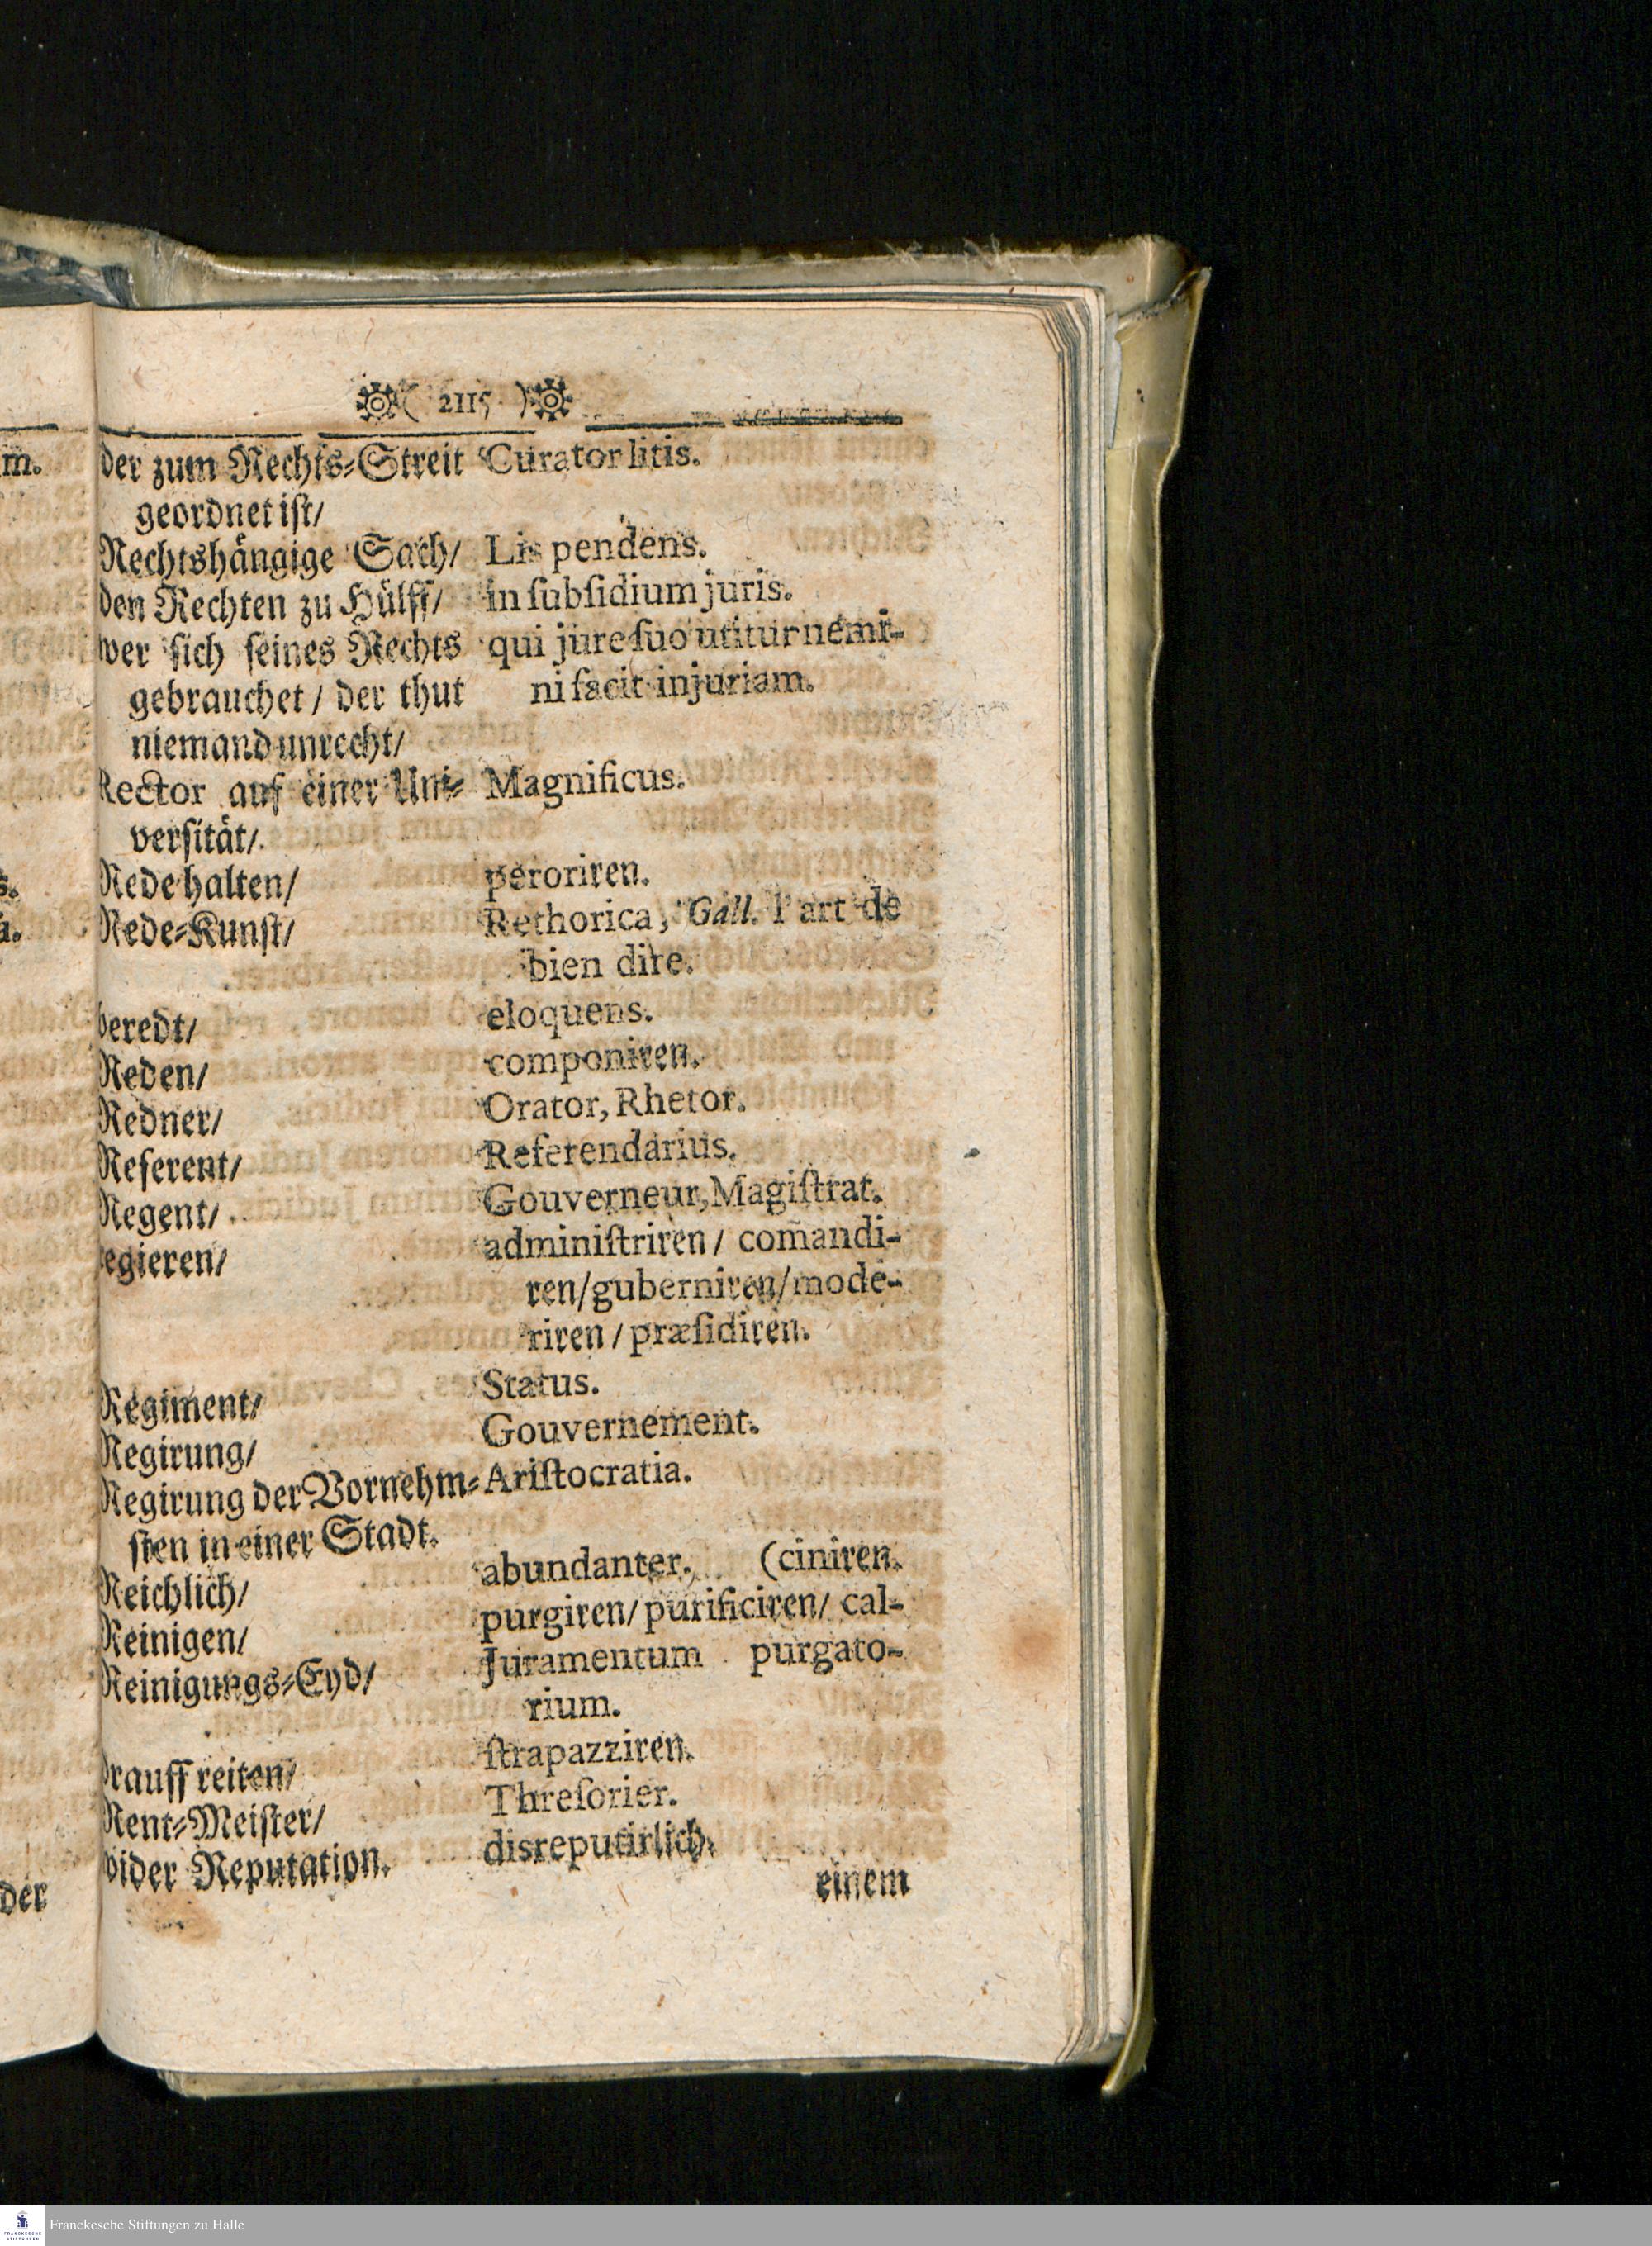 ( 2115 )
der zum Rechts⸗Streit Curator litis.
geordnet ist/
Rechtshängige Sach/ Lis pendens.
den Rechten zu Hülff/ in ſubſidium juris.
wer sich seines Rechts qui jure ſuo utitur nemi-
gebrauchet / der thut ni facit injuriam.
niemand unrecht/
Rector auf einer Uni⸗ Magnificus.
versität/
Rede halten/ peroriren.
Rede⸗Kunst/ Rethorica, Gall. l'art de
bien dire.
beredt/ eloquens.
Reden/ componiren.
Redner/ Orator, Rhetor.
Referent/ Referendarius.
Regent/ Gouverneur, Magiſtrat.
regieren/ adminiſtriren / com̃andi-
ren/guberniren/mode-
riren / præſidiren.
Regiment/ Status.
Regirung/ Gouvernement.
Regirung der Vornehm⸗ Ariſtocratia.
sten in einer Stadt.
Reichlich/ abundanter. (ciniren.
Reinigen/ purgiren/ purificiren/ cal-
Reinigungs⸗Eyd/ Juramentum purgato-
rium.
drauff reiten/ ſtrapazziren.
Rent⸗Meister/ Threſorier.
wider Reputation. disreputirlich.
einem
m.
s.
a.
der
Franckesche Stiftungen zu Halle